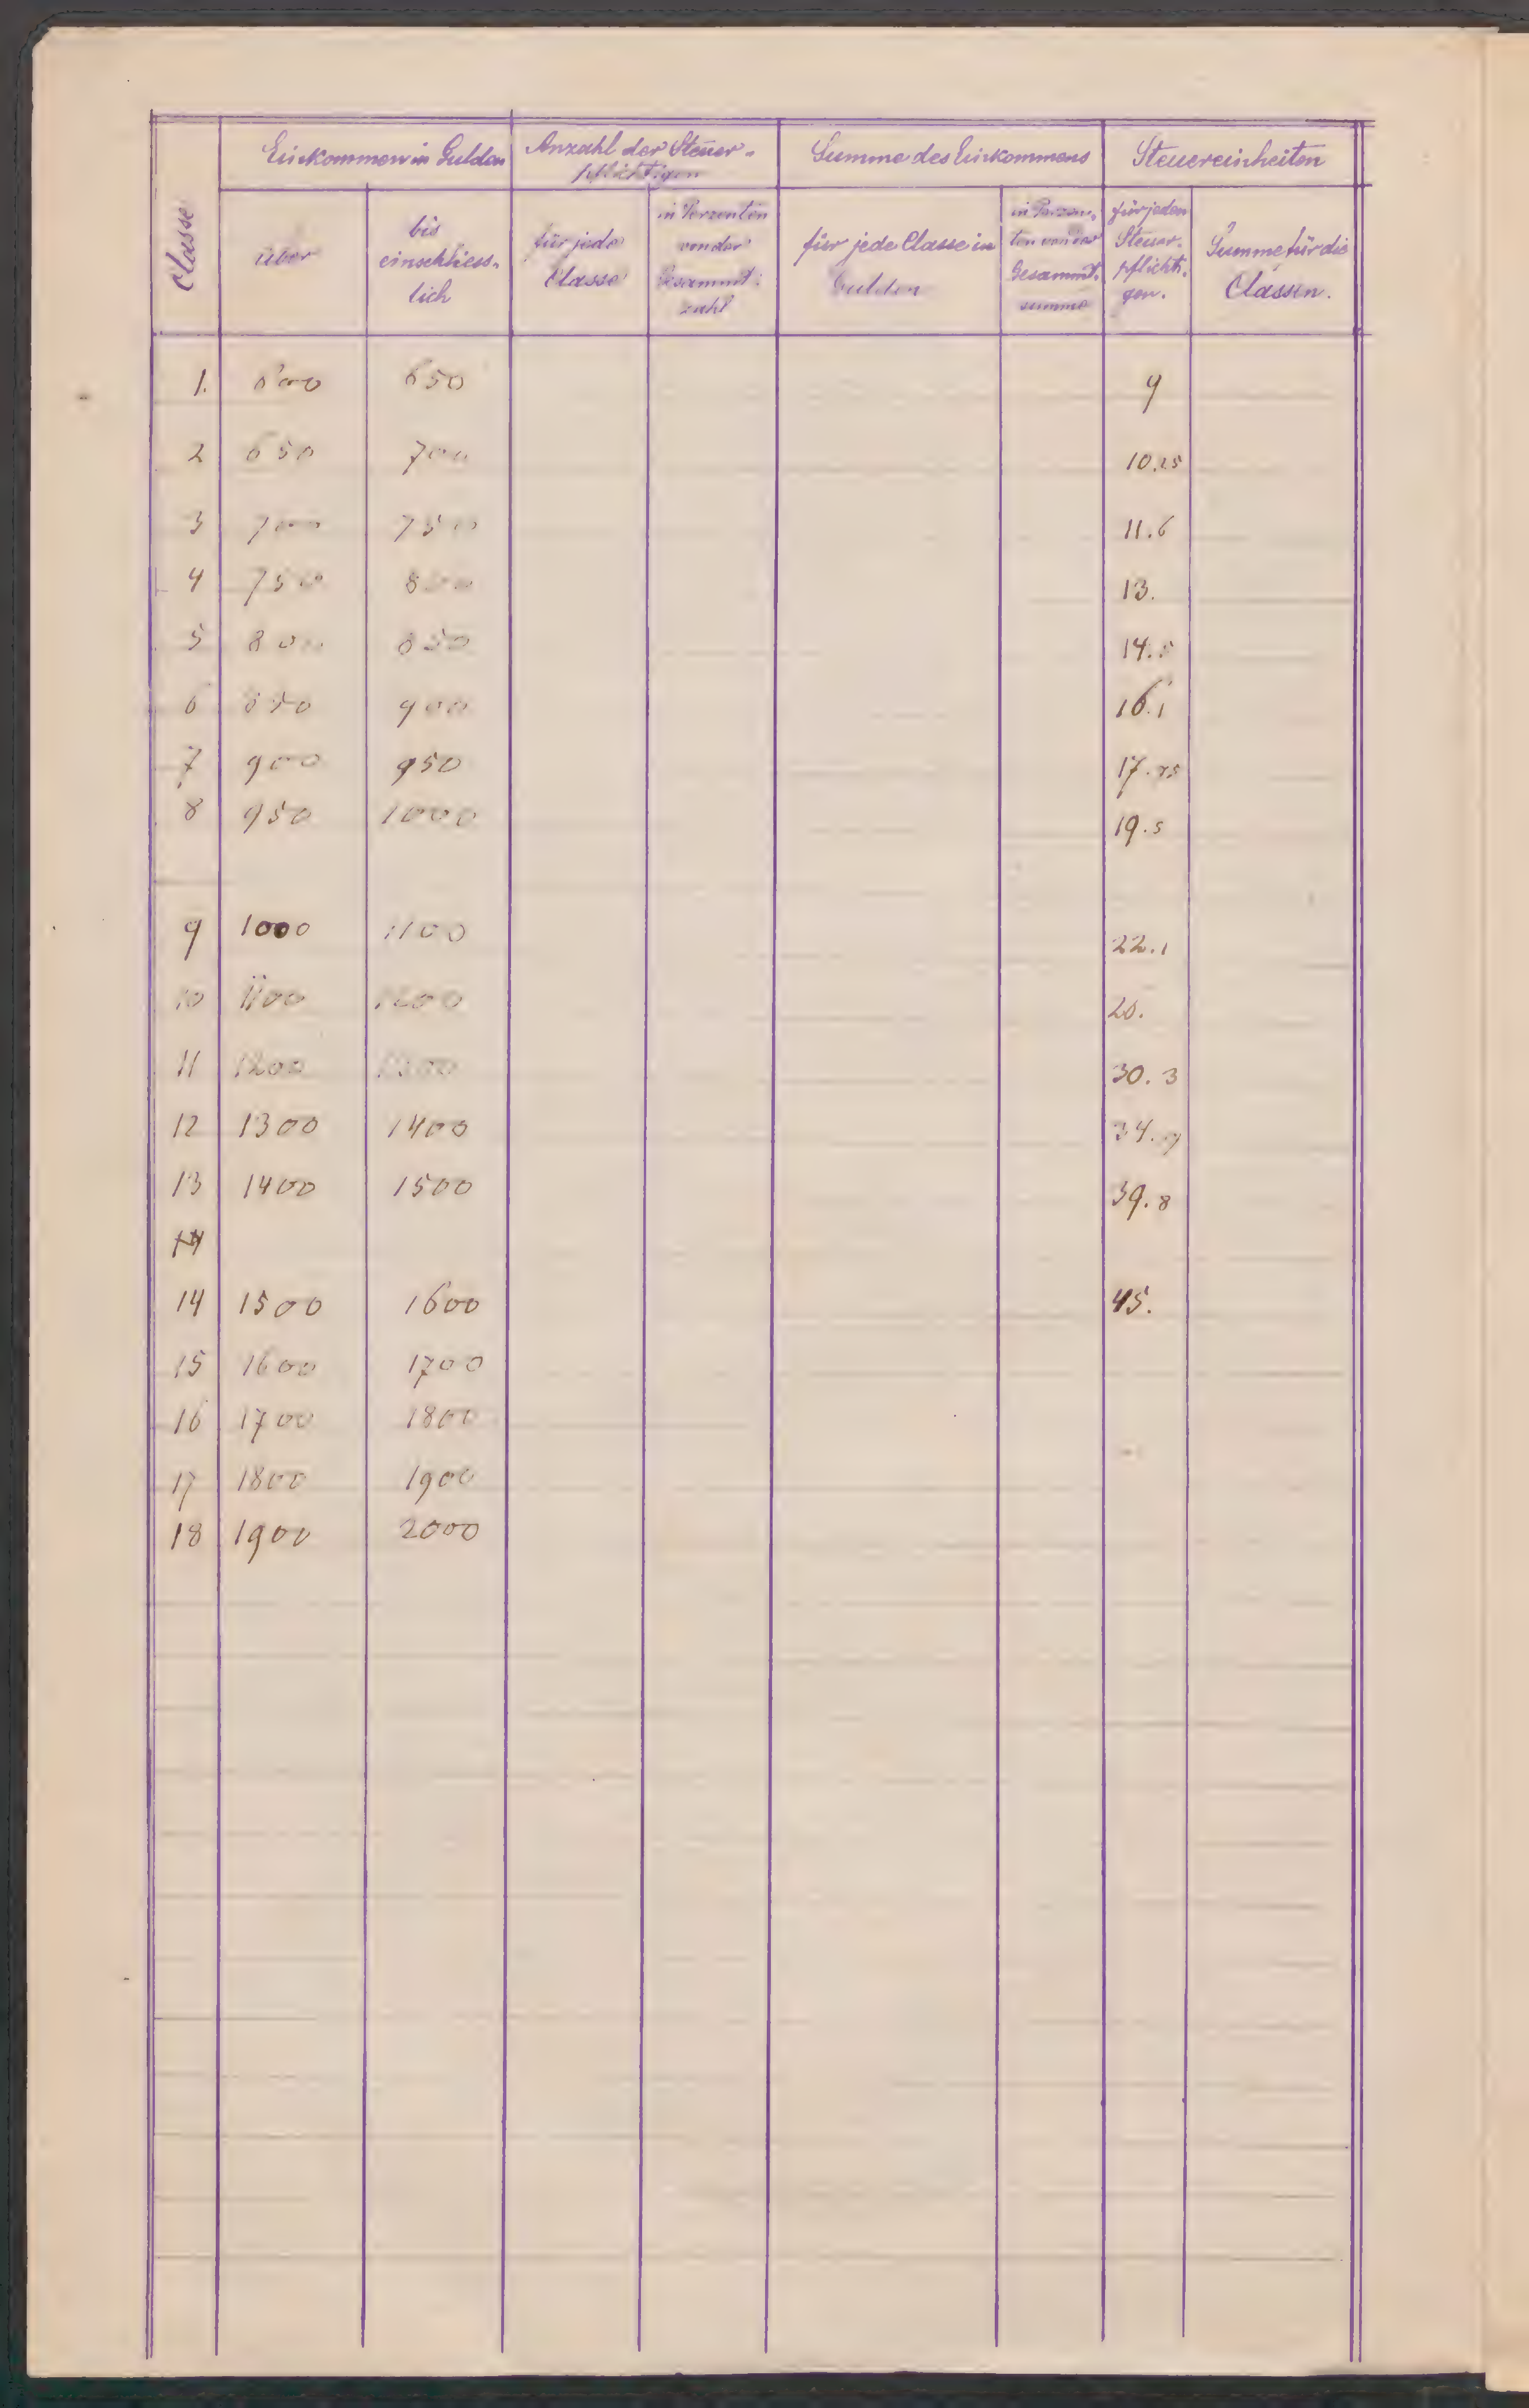 Classe
Einkommen in Gulden
Anzahl der Steuer-
pflichtigen
Summe des Einkommens
Steuereinheiten
über
bis
einschliess-
lich
für jede
Classe
in Perzenten
von der
Gesammt-
zahl
für jede Classe in
Gulden
in Perzen-
ten von der
Gesammt-
summe
für jeden
Steuer-
pflichti-
gen.
Summe für die
Classen.
1. 600 650 9
2 650 700 10.25
3 700 750 11.6
4 750 800 13.
5 800 850 14.5
6 850 900 16.1
7 900 950 17.75
8 950 1000 19.5
9 1000 1100 22.1
10 1100 1200
11 1200 1300 30.3
12 1300 1400 34.9
13 1400 1500 39.8
14
14 1500 1600 45.
15 1600 1700
16 1700 1800
17 1800 1900
18 1900 2000